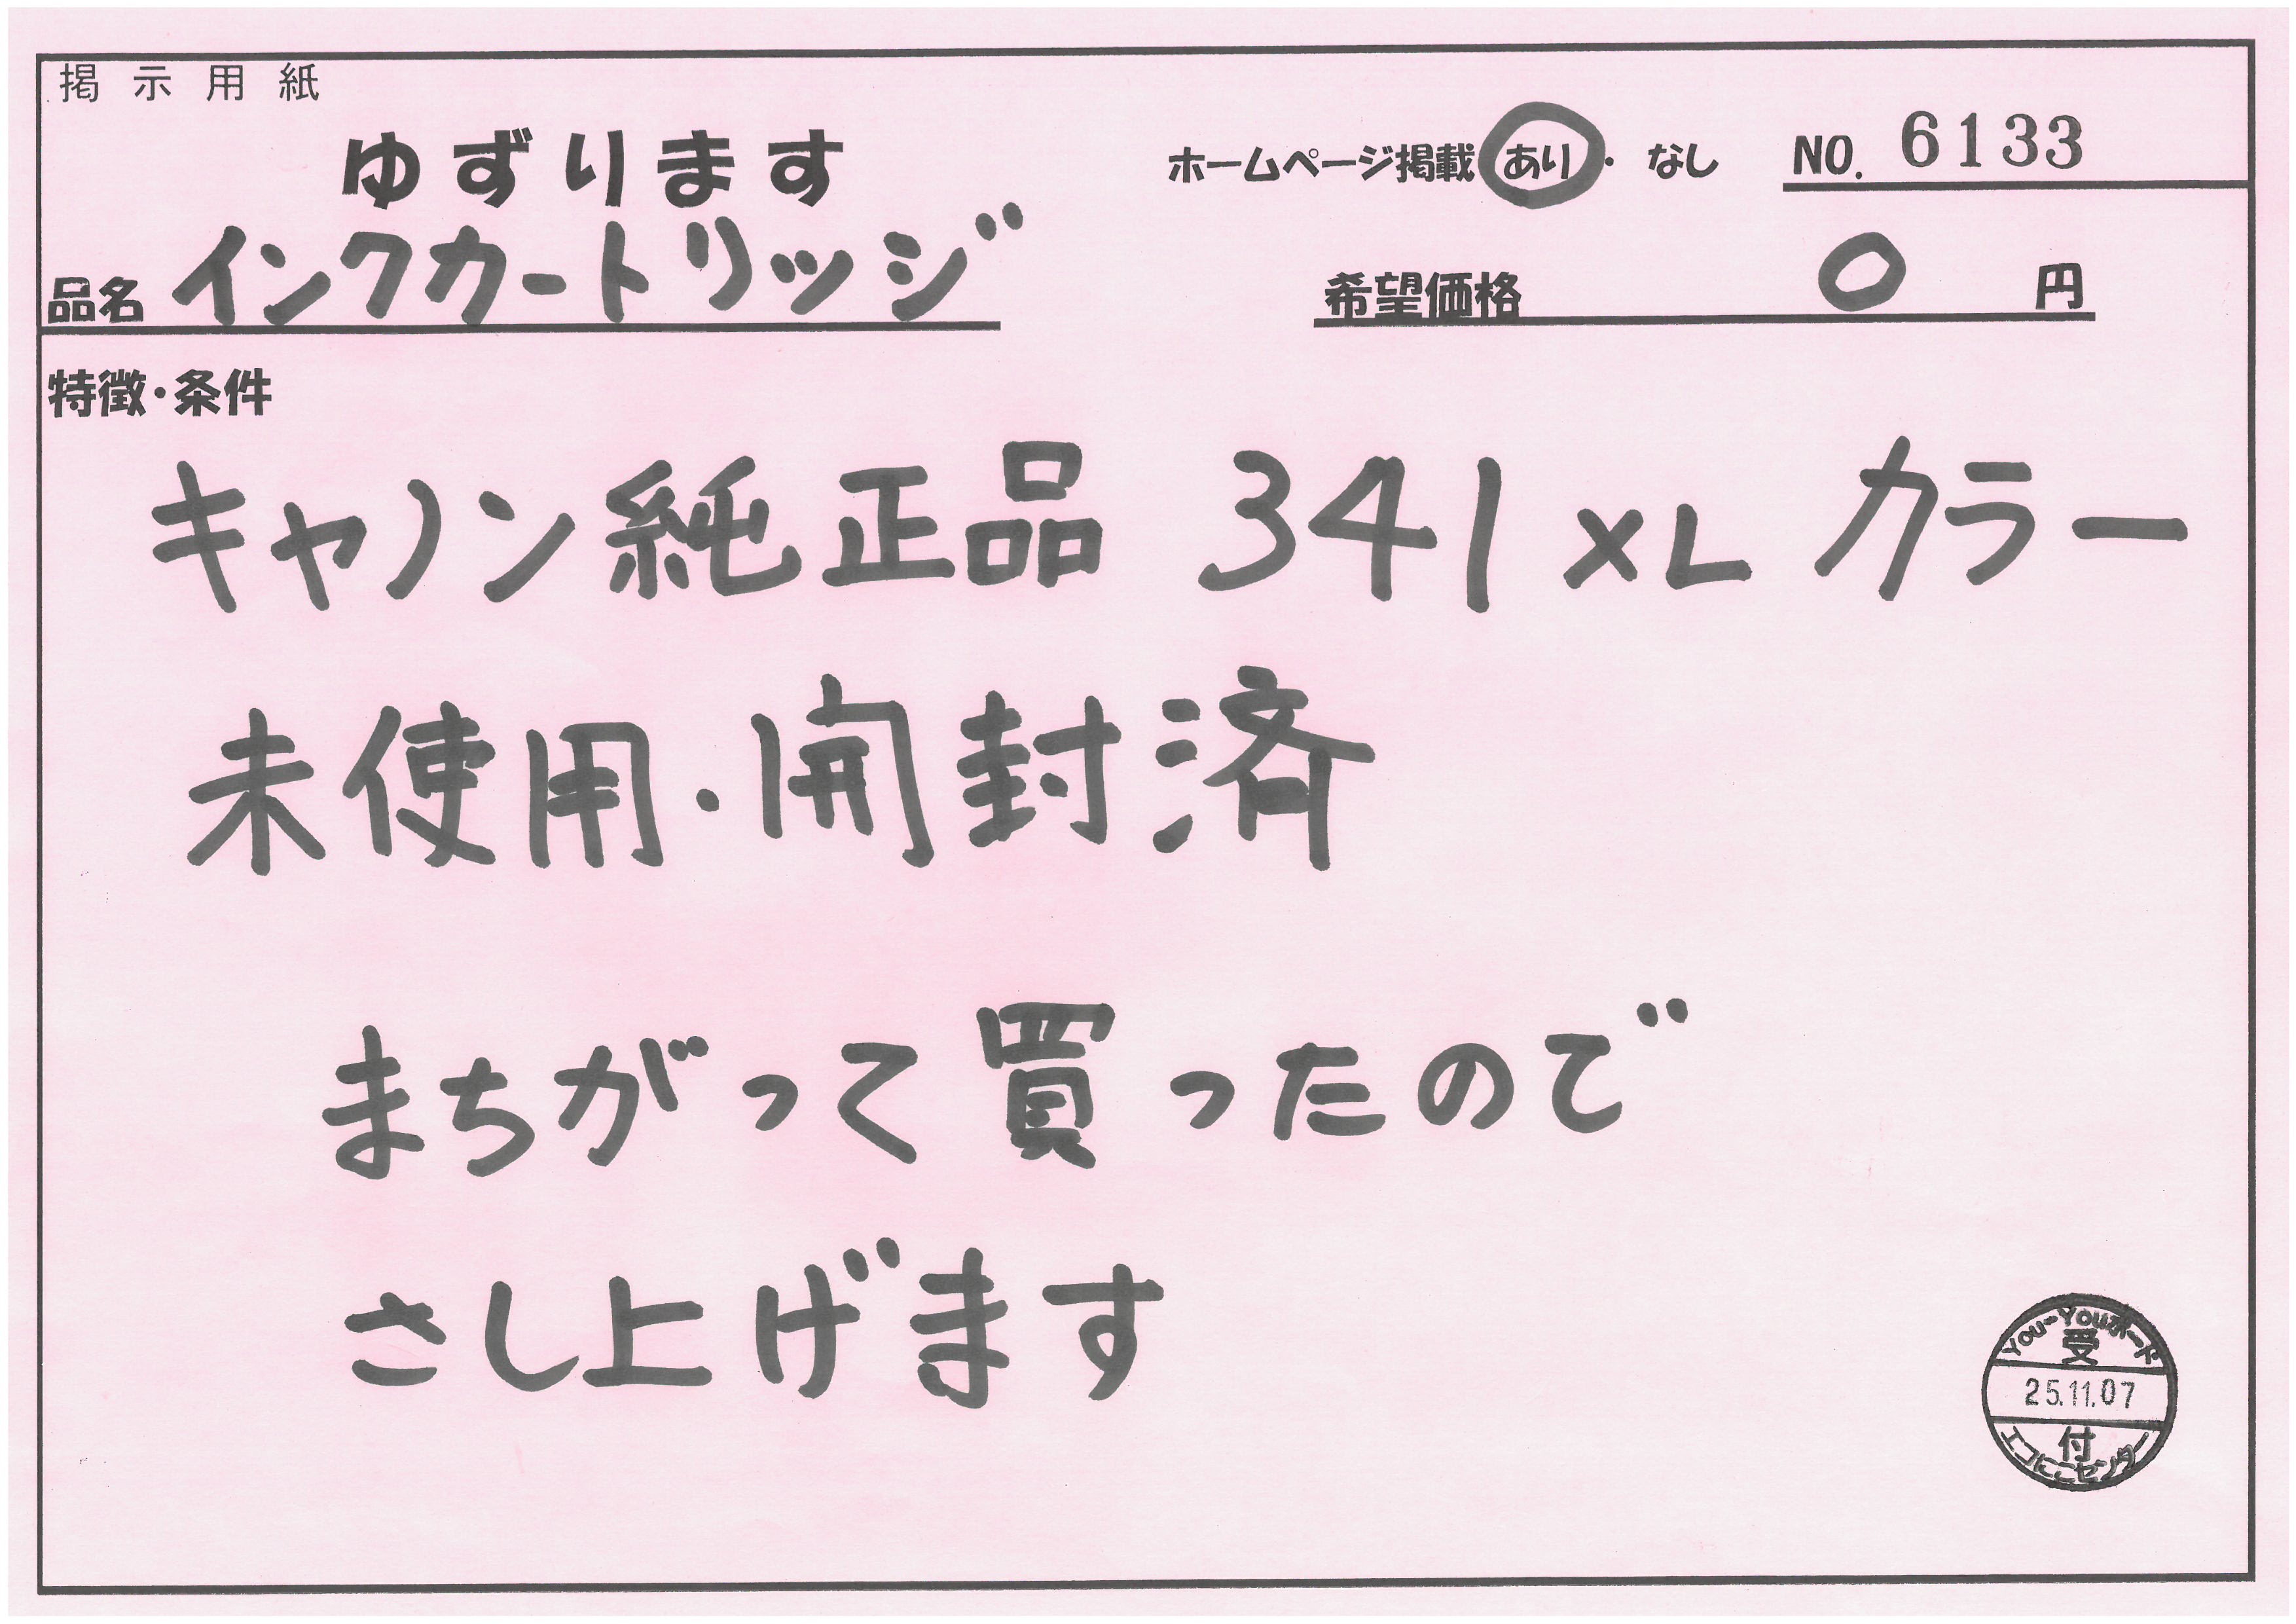 掲示用紙
ゆずります
ホームページ掲載 あり ・ なし NO. 6133
品名 インクカートリッジ
希望価格 0 円
特徴・条件
キャノン純正品 341XL カラー
未使用・開封済
まちがって買ったので
さし上げます
You-Youボード
受
25.11.07
付
エコにこセンター